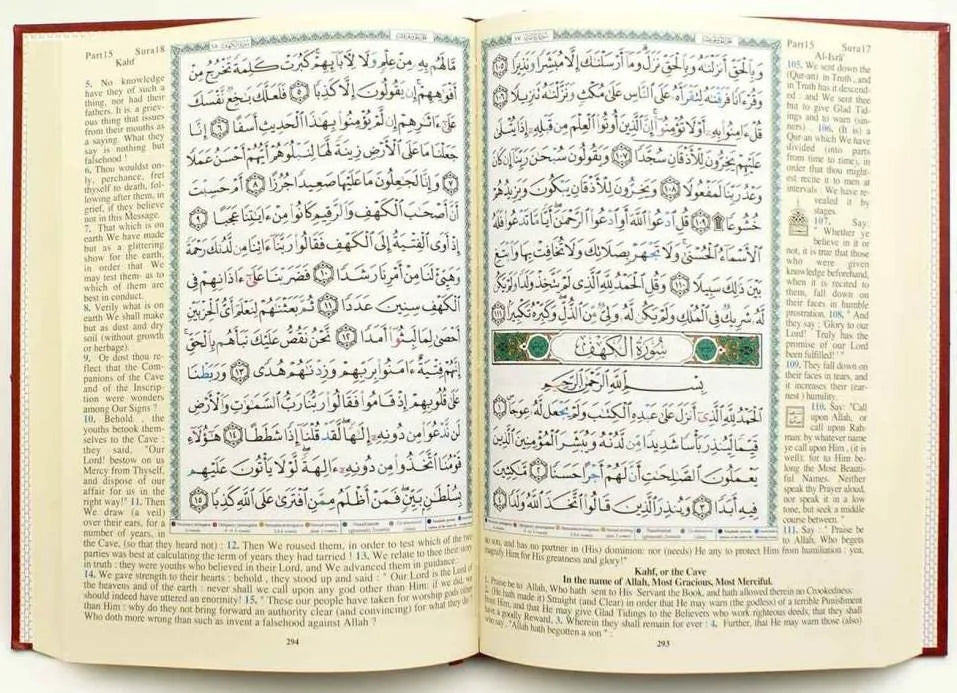 Part15 Sura17
Al-Isrā'
105. We sent down the
(Qur-an) in Truth, and
in Truth has it descend-
ed : and We sent thee
but to give Glad Tid-
ings and to warn (sin-
ners). 106. (It is) a
Qur-an which We have
divided (into parts
from time to time), in
order that thou might-
est recite it to men at
intervals : We have re-
vealed it by
stages.
107. Say:
" Whether ye
believe in it or
not, it is true that those
who were given
knowledge beforehand,
when it is recited to
them, fall down on
their faces in humble
prostration, 108. " And
they say : 'Glory to our
Lord! Truly has the
promise of our Lord
been fulfilled!' "
109. They fall down on
their faces in tears, and
it increases their (ear-
nest) humility.
110. Say: "Call
upon Allah, or
call upon Rah-
man: by whatever name
ye call upon Him, (it is
well): for to Him be-
long the Most Beauti-
ful Names. Neither
speak thy Prayer aloud,
nor speak it in a low
tone, but seek a middle
course between."
111. Say : " Praise be
to Allah, Who begets
وَبِالْحَقِّ أَنزَلْنَٰهُ وَبِالْحَقِّ نَزَلَ وَمَآ أَرْسَلْنَٰكَ إِلَّا مُبَشِّرًا وَنَذِيرًا ١٠٥
وَقُرْءَانًا فَرَقْنَٰهُ لِتَقْرَأَهُۥ عَلَى النَّاسِ عَلَىٰ مُكْثٍ وَنَزَّلْنَٰهُ تَنزِيلًا ١٠٦
قُلْ ءَامِنُوا بِهِۦٓ أَوْ لَا تُؤْمِنُوٓا إِنَّ الَّذِينَ أُوتُوا الْعِلْمَ مِن قَبْلِهِۦٓ إِذَا يُتْلَىٰ
عَلَيْهِمْ يَخِرُّونَ لِلْأَذْقَانِ سُجَّدًا ١٠٧ وَيَقُولُونَ سُبْحَٰنَ رَبِّنَآ إِن كَانَ
وَعْدُ رَبِّنَا لَمَفْعُولًا ١٠٨ وَيَخِرُّونَ لِلْأَذْقَانِ يَبْكُونَ وَيَزِيدُهُمْ
خُشُوعًا ۩ ١٠٩ قُلِ ادْعُوا اللَّهَ أَوِ ادْعُوا الرَّحْمَٰنَ أَيًّا مَّا تَدْعُوا فَلَهُ
الْأَسْمَآءُ الْحُسْنَىٰ وَلَا تَجْهَرْ بِصَلَاتِكَ وَلَا تُخَافِتْ بِهَا وَابْتَغِ
بَيْنَ ذَٰلِكَ سَبِيلًا ١١٠ وَقُلِ الْحَمْدُ لِلَّهِ الَّذِي لَمْ يَتَّخِذْ وَلَدًا وَلَمْ يَكُن
لَّهُۥ شَرِيكٌ فِي الْمُلْكِ وَلَمْ يَكُن لَّهُۥ وَلِيٌّ مِّنَ الذُّلِّ وَكَبِّرْهُ تَكْبِيرًا ١١١
سُورَةُ الْكَهْفِ
بِسْمِ اللَّهِ الرَّحْمَٰنِ الرَّحِيمِ
الْحَمْدُ لِلَّهِ الَّذِيٓ أَنزَلَ عَلَىٰ عَبْدِهِ الْكِتَٰبَ وَلَمْ يَجْعَل لَّهُۥ عِوَجَا ١
قَيِّمًا لِّيُنذِرَ بَأْسًا شَدِيدًا مِّن لَّدُنْهُ وَيُبَشِّرَ الْمُؤْمِنِينَ الَّذِينَ
يَعْمَلُونَ الصَّٰلِحَٰتِ أَنَّ لَهُمْ أَجْرًا حَسَنًا ٢ مَّٰكِثِينَ
فِيهِ أَبَدًا ٣ وَيُنذِرَ الَّذِينَ قَالُوا اتَّخَذَ اللَّهُ وَلَدًا ٤
no son, and has no partner in (His) dominion: nor (needs) He any to protect Him from humiliation : yea,
magnify Him for His greatness and glory!"
Kahf, or the Cave
In the name of Allah, Most Gracious, Most Merciful.
1. Praise be to Allah, Who hath sent to His Servant the Book, and hath allowed therein no Crookedness:
2. (He hath made it) Straight (and Clear) in order that He may warn (the godless) of a terrible Punishment
from Him, and that He may give Glad Tidings to the Believers who work righteous deeds, that they shall
have a goodly Reward, 3. Wherein they shall remain for ever : 4. Further, that He may warn those (also)
who say, "Allah hath begotten a son" :
293
Part15 Sura18
Kahf
5. No knowledge
have they of such a
thing, nor had their
fathers. It is a griev-
ous thing that issues
from their mouths as
a saying. What they
say is nothing but
falsehood !
6. Thou wouldst on-
ly, perchance, fret
thyself to death, fol-
lowing after them, in
grief, if they believe
not in this Message.
7. That which is on
earth We have made
but as a glittering
show for the earth,
in order that We
may test them- as to
which of them are
best in conduct.
8. Verily what is on
earth We shall make
but as dust and dry
soil (without growth
or herbage).
9. Or dost thou re-
flect that the Com-
panions of the Cave
and of the Inscrip-
tion were wonders
among Our Signs ?
10. Behold, the
youths betook them-
selves to the Cave :
they said, "Our
Lord! bestow on us
Mercy from Thyself,
and dispose of our
affair for us in the
right way!" 11. Then
We draw (a veil)
over their ears, for a
number of years, in
مَّا لَهُم بِهِۦ مِنْ عِلْمٍ وَلَا لِءَابَآئِهِمْ كَبُرَتْ كَلِمَةً تَخْرُجُ مِنْ
أَفْوَٰهِهِمْ إِن يَقُولُونَ إِلَّا كَذِبًا ٥ فَلَعَلَّكَ بَٰخِعٌ نَّفْسَكَ
عَلَىٰٓ ءَاثَٰرِهِمْ إِن لَّمْ يُؤْمِنُوا بِهَٰذَا الْحَدِيثِ أَسَفًا ٦ إِنَّا
جَعَلْنَا مَا عَلَى الْأَرْضِ زِينَةً لَّهَا لِنَبْلُوَهُمْ أَيُّهُمْ أَحْسَنُ عَمَلًا
٧ وَإِنَّا لَجَٰعِلُونَ مَا عَلَيْهَا صَعِيدًا جُرُزًا ٨ أَمْ حَسِبْتَ
أَنَّ أَصْحَٰبَ الْكَهْفِ وَالرَّقِيمِ كَانُوا مِنْ ءَايَٰتِنَا عَجَبًا ٩
إِذْ أَوَى الْفِتْيَةُ إِلَى الْكَهْفِ فَقَالُوا رَبَّنَآ ءَاتِنَا مِن لَّدُنكَ رَحْمَةً
وَهَيِّئْ لَنَا مِنْ أَمْرِنَا رَشَدًا ١٠ فَضَرَبْنَا عَلَىٰٓ ءَاذَانِهِمْ فِي
الْكَهْفِ سِنِينَ عَدَدًا ١١ ثُمَّ بَعَثْنَٰهُمْ لِنَعْلَمَ أَيُّ الْحِزْبَيْنِ
أَحْصَىٰ لِمَا لَبِثُوٓا أَمَدًا ١٢ نَّحْنُ نَقُصُّ عَلَيْكَ نَبَأَهُم بِالْحَقِّ
إِنَّهُمْ فِتْيَةٌ ءَامَنُوا بِرَبِّهِمْ وَزِدْنَٰهُمْ هُدًى ١٣ وَرَبَطْنَا
عَلَىٰ قُلُوبِهِمْ إِذْ قَامُوا فَقَالُوا رَبُّنَا رَبُّ السَّمَٰوَٰتِ وَالْأَرْضِ
لَن نَّدْعُوَا مِن دُونِهِۦٓ إِلَٰهًا لَّقَدْ قُلْنَآ إِذًا شَطَطًا ١٤ هَٰٓؤُلَآءِ
قَوْمُنَا اتَّخَذُوا مِن دُونِهِۦٓ ءَالِهَةً لَّوْلَا يَأْتُونَ عَلَيْهِم
بِسُلْطَٰنٍ بَيِّنٍ فَمَنْ أَظْلَمُ مِمَّنِ افْتَرَىٰ عَلَى اللَّهِ كَذِبًا ١٥
the Cave, (so that they heard not) : 12. Then We roused them, in order to test which of the two
parties was best at calculating the term of years they had tarried ! 13. We relate to thee their story
in truth : they were youths who believed in their Lord, and We advanced them in guidance:
14. We gave strength to their hearts : behold, they stood up and said : " Our Lord is the Lord of
the heavens and of the earth : never shall we call upon any god other than Him: if we did, we
should indeed have uttered an enormity! 15. " These our people have taken for worship gods other
than Him : why do they not bring forward an authority clear (and convincing) for what they do ?
Who doth more wrong than such as invent a falsehood against Allah ?
294